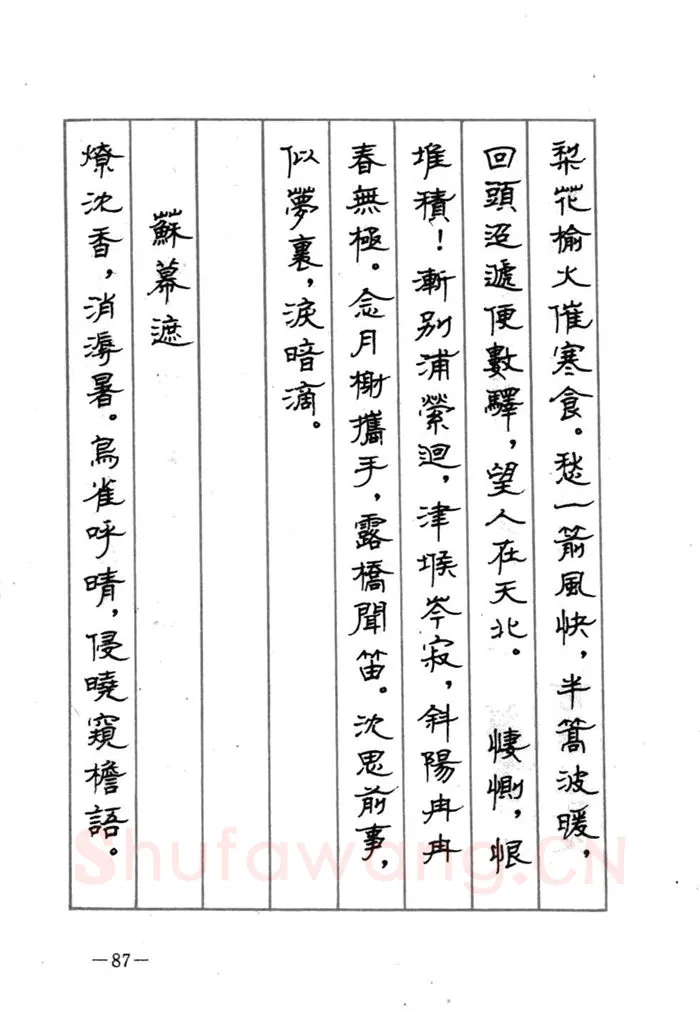 梨花榆火催寒食。愁一箭風快，半篙波暖，
回頭迢遞便數驛，望人在天北。　悽惻，恨
堆積！漸別浦縈迴，津堠岑寂，斜陽冉冉
春無極。念月榭攜手，露橋聞笛。沈思前事，
似夢裏，淚暗滴。
蘇幕遮
燎沈香，消溽暑。鳥雀呼晴，侵曉窺檐語。
Shufawang.CN
—87—